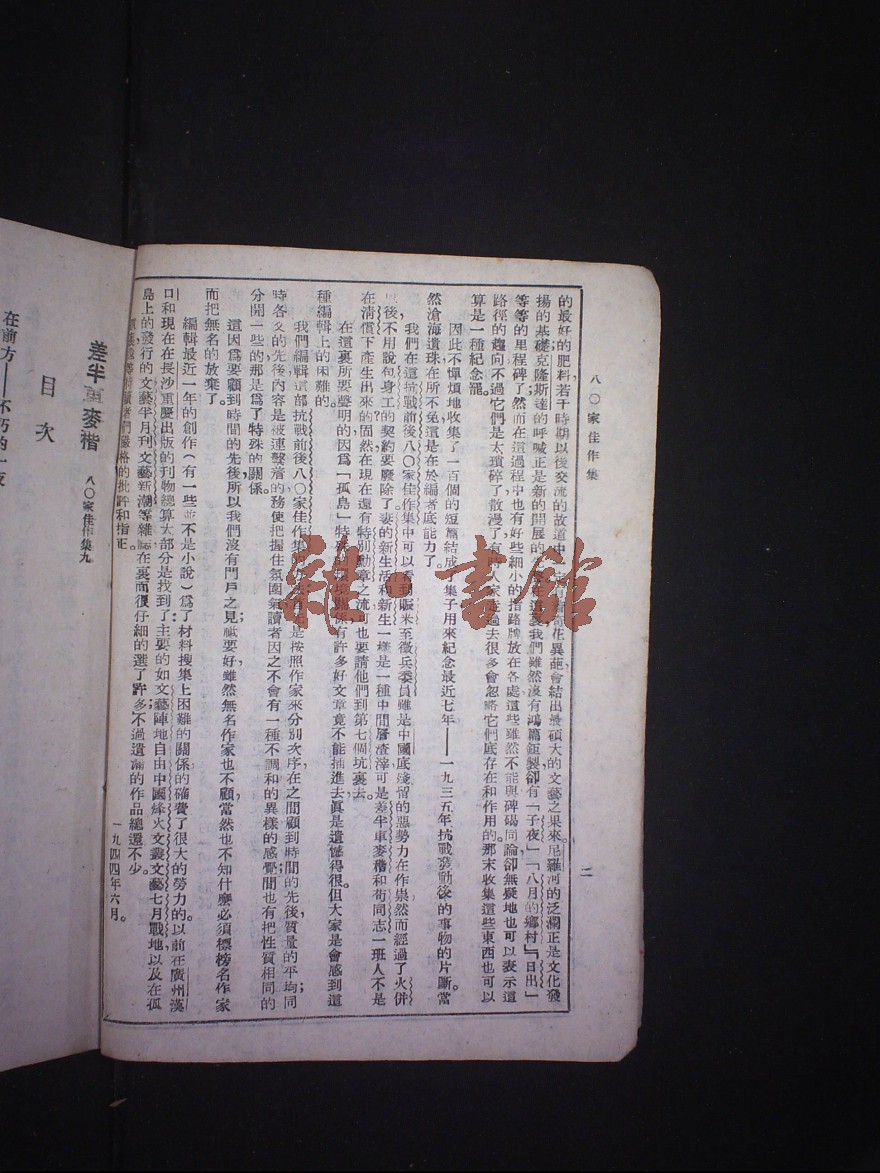 八〇家佳作集
二
的最好的肥料若干時期以後交流的故道中花異葩會結出最碩大的文藝之果來。尼羅河的泛濫正是文化發
揚的基礎克隆斯達的呼喊正是新的開展的我們雖然沒有鴻篇鉅製卻有「子夜」「八月的鄉村」「日出」
等等的里程碑了然而在這過程中也有好些細小的指路牌放在各處這些雖然不能與碑碣同論卻無疑地也可以表示這
路徑的趨向不過它們是太瑣碎了散漫了有時人家走過去很多會忽略它們底存在和作用的。那末收集這些東西也可以
算是一種紀念罷。
因此不憚煩地收集了一百個的短篇結成了集子用來紀念最近七年——一九三五年抗戰發動後的事物的片斷當
然滄海遺珠在所不免這是在於編者底能力了。
我們在這抗戰前後八〇家佳作集中可以看到販米至徵兵委員雖是中國底殘留的惡勢力在作祟然而經過了火併
以後不用說包身工的契約要廢除了妻的新生活和新生一樣是一種中間層渣滓可是差半車麥楷和荀同志一班人不是
在清償下產生出來的?固然在現在還有特別勳章之流可也要請他們到第七個坑裏去。
在這裏所要聲明的因爲「孤島」特殊的環境關係有許多好文章竟不能抽進去眞是遺憾得很。但大家是會感到這
種編輯上的困難的。
我們編輯這部抗戰前後八〇家佳作集的方法首先是按照作家來分別次序在之間顧到時間的先後,質量的平均同
時各文的先後內容是被連繫着的務使把握住氛圍氣讀者因之不會有一種不調和的異樣的感覺間也有把性質相同的
分開一些的那是爲了特殊的關係。
這因爲要顧到時間的先後所以我們沒有門戶之見,祇要好,雖然無名作家也不顧當然也不知什麼必須標榜名作家
而把無名的放棄了。
編輯最近一年的創作(有一些並不是小說)爲了材料搜集上困難的關係的確費了很大的勞力的。以前在廣州漢
口和現在在長沙重慶出版的刊物總算大部分是找到了主要的如文藝陣地自由中國烽火文叢文藝七月戰地以及在孤
島上的發行的文藝半月刊文藝新潮等雜誌在裏面很仔細的選了許多,不過遺漏的作品總還不少。
讀者們嚴格的批評和指正。
一九四四年六月。
差半車麥楷 八〇家佳作集九
目次
在前方——不朽的一夜
雜·書館